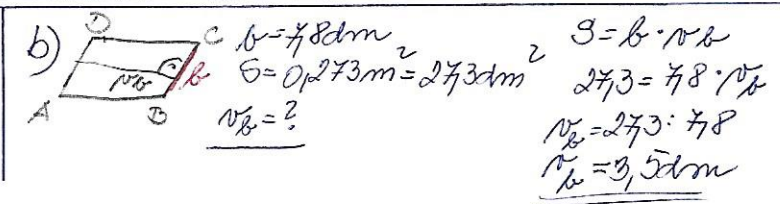 b)
D C
v_b b
A B
b = 7,8dm
S = 0,273m² = 27,3dm²
v_b = ?
S = b · v_b
27,3 = 7,8 · v_b
v_b = 27,3 : 7,8
v_b = 3,5dm